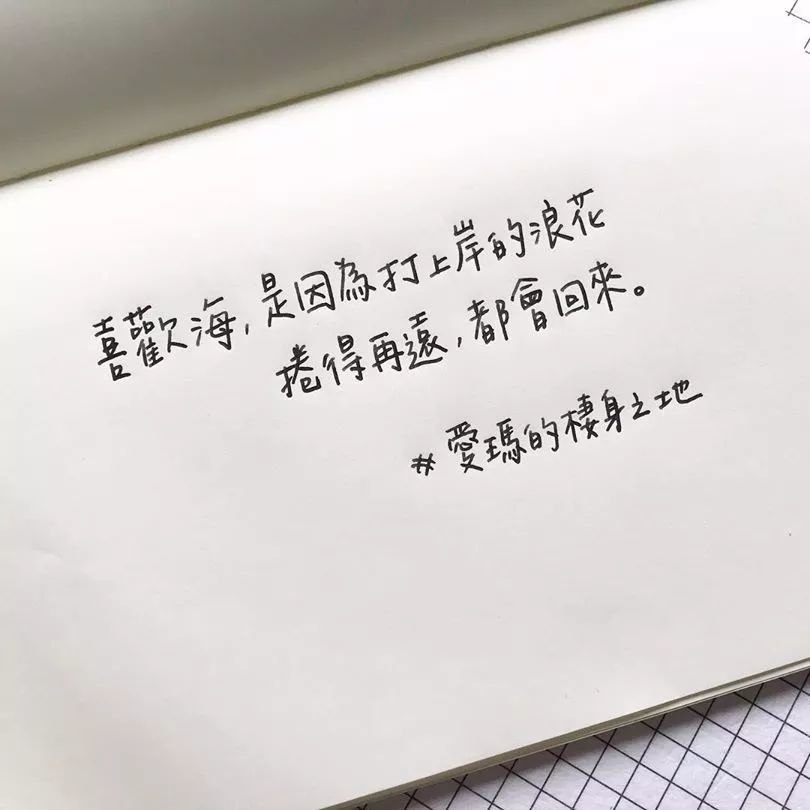 喜歡海,是因為打上岸的浪花
捲得再遠,都會回來。
#愛瑪的棲身之地